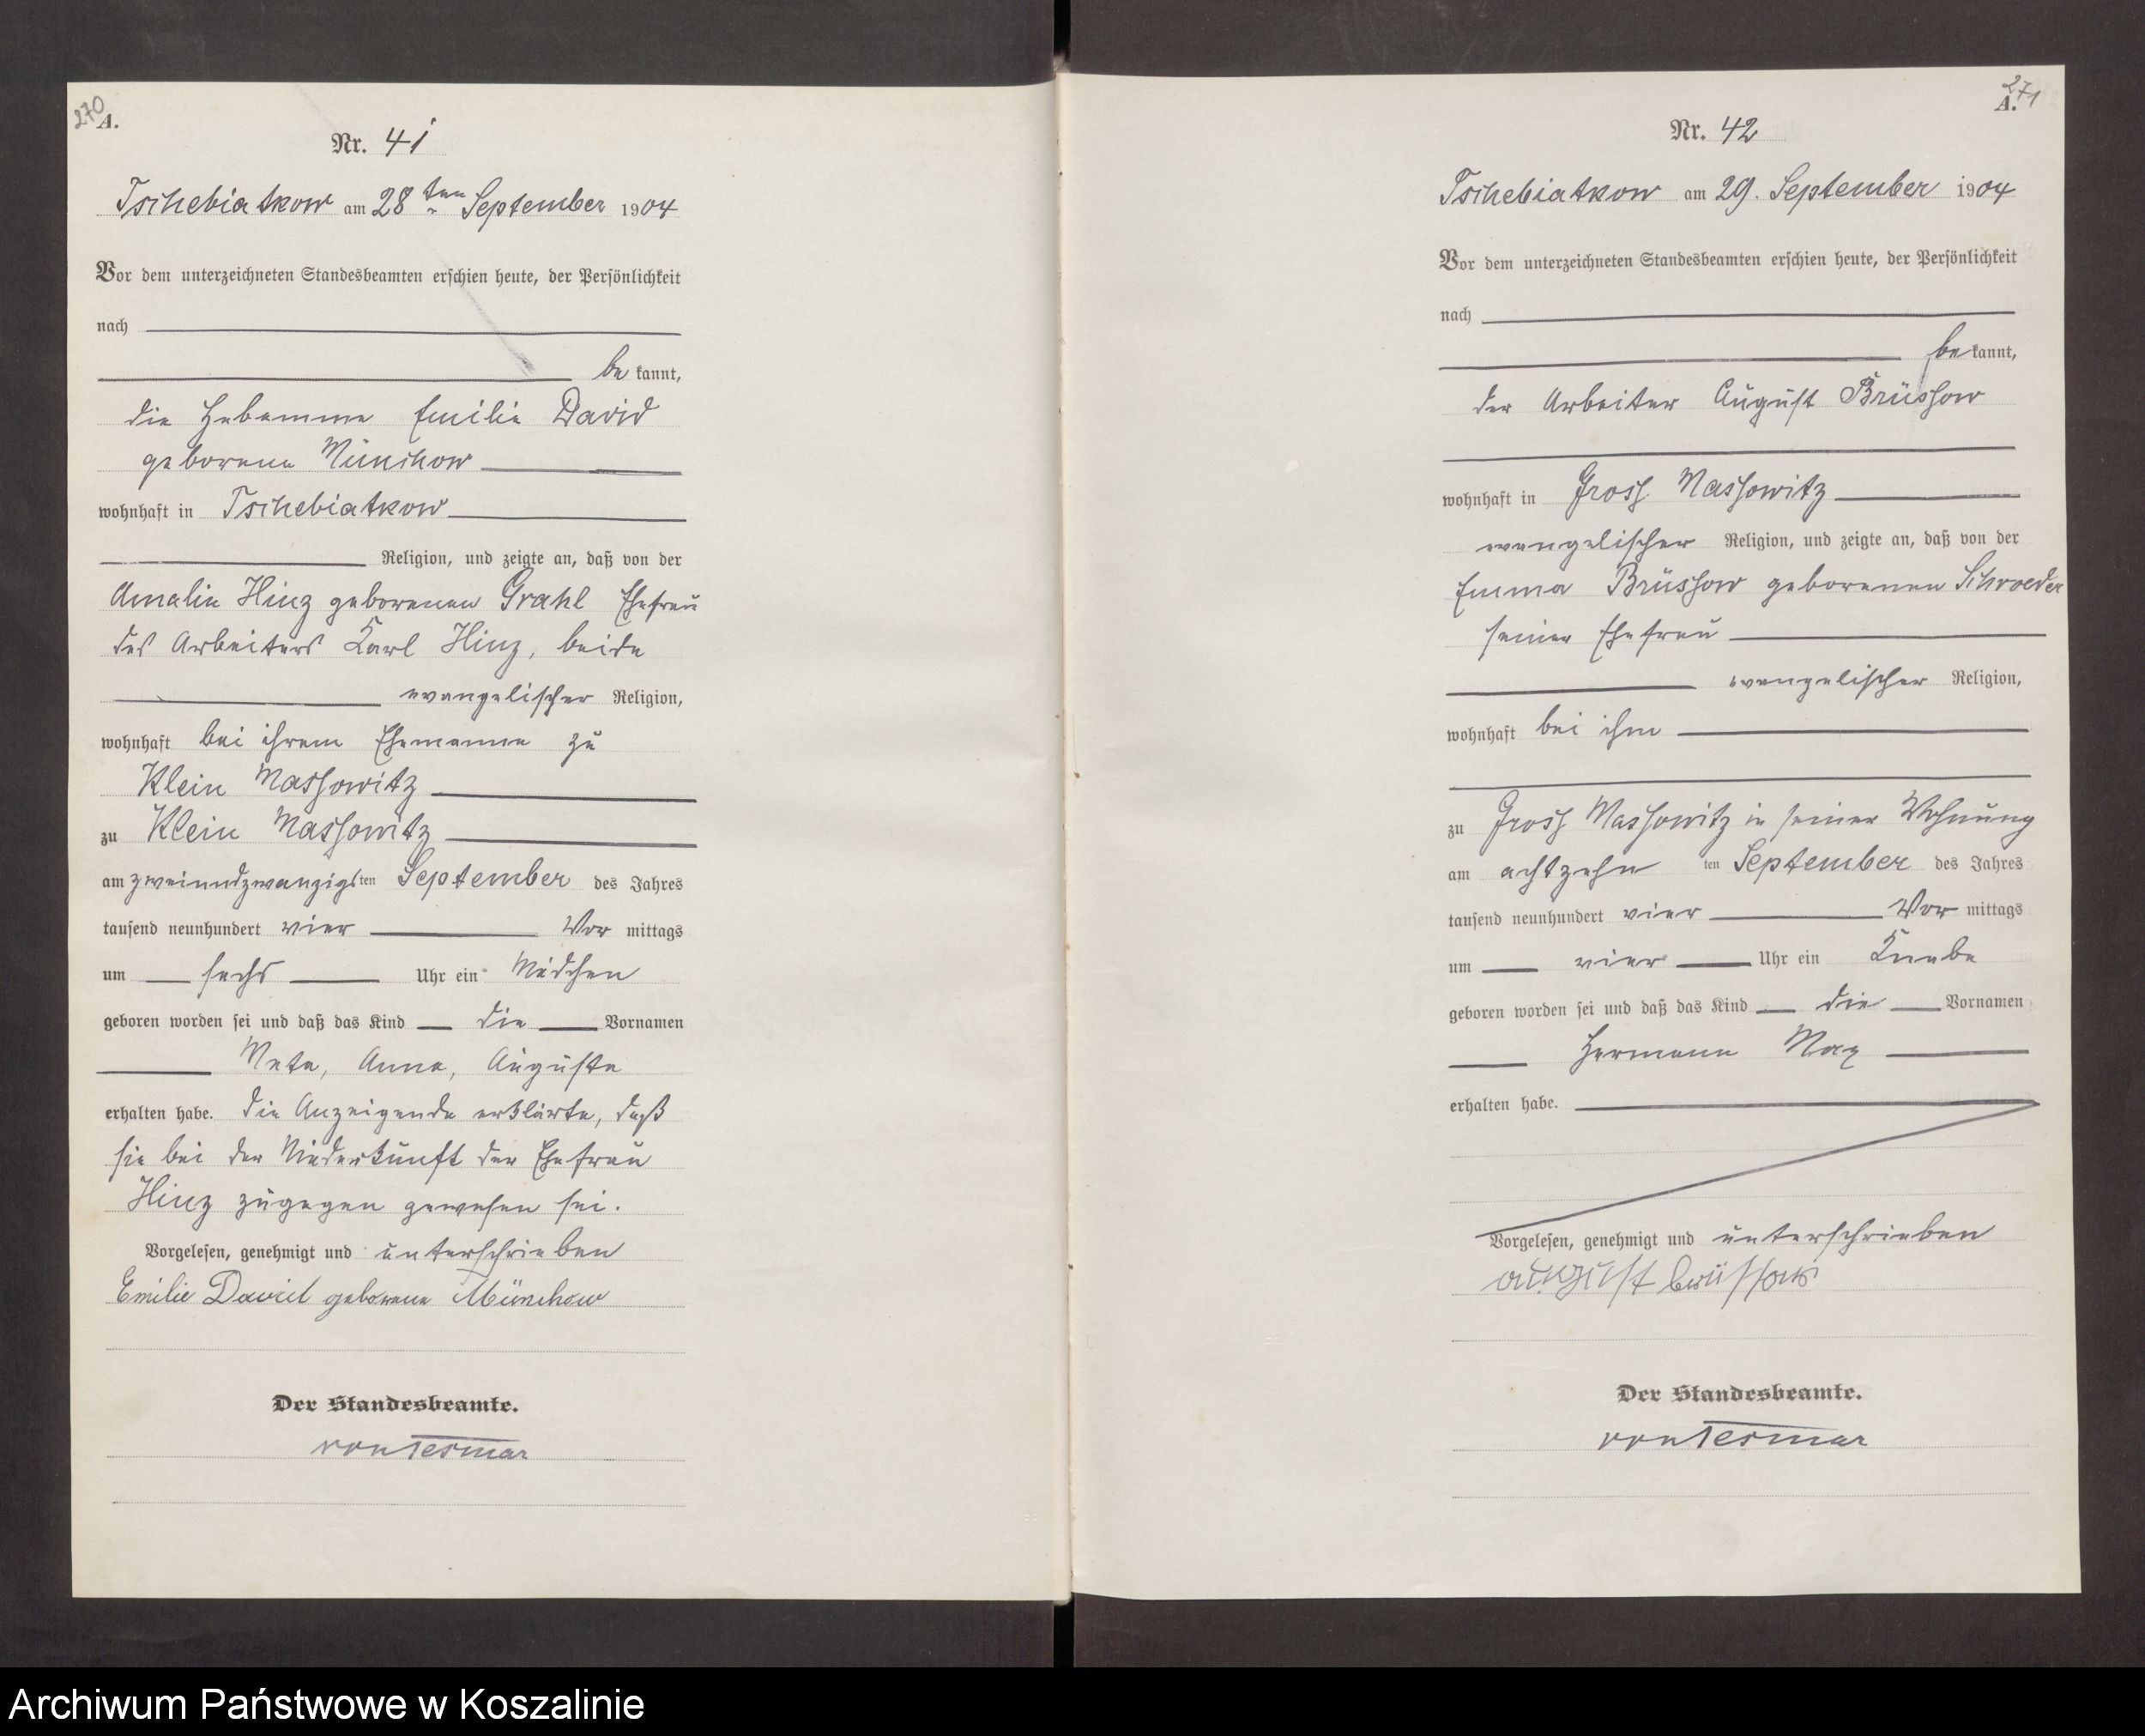 270
A.
Nr. 41
Tschebiatkow am 28ten September 1904
Vor dem unterzeichneten Standesbeamten erschien heute, der Persönlichkeit
nach
be kannt,
die Hebamme Emilie David
geborene Münchow
wohnhaft in Tschebiatkow
Religion, und zeigte an, daß von der
Amalie Hinz geborenen Grahl Ehefrau
des Arbeiters Karl Hinz, beide
evangelischer Religion,
wohnhaft bei ihrem Ehemanne zu
Klein Massowitz
zu Klein Massowitz
am zweiundzwanzigsten September des Jahres
tausend neunhundert vier Vor mittags
um sechs Uhr ein Mädchen
geboren worden sei und daß das Kind die Vornamen
Meta, Anna, Auguste
erhalten habe. Die Anzeigende erklärte, daß
sie bei der Niederkunft der Ehefrau
Hinz zugegen gewesen sei.
Vorgelesen, genehmigt und unterschrieben
Emilie David geborene Münchow
Der Standesbeamte.
von Tesmar
271
A.
Nr. 42
Tschebiatkow am 29. September 1904
Vor dem unterzeichneten Standesbeamten erschien heute, der Persönlichkeit
nach
be kannt,
der Arbeiter August Brüssow
wohnhaft in Gross Massowitz
evangelischer Religion, und zeigte an, daß von der
Emma Brüssow geborenen Schroeder
seiner Ehefrau
evangelischer Religion,
wohnhaft bei ihm
zu Gross Massowitz in seiner Wohnung
am achtzehn ten September des Jahres
tausend neunhundert vier Vor mittags
um vier Uhr ein Knabe
geboren worden sei und daß das Kind die Vornamen
Hermann Max
erhalten habe.
Vorgelesen, genehmigt und unterschrieben
august brüssow
Der Standesbeamte.
von Tesmar
Archiwum Państwowe w Koszalinie